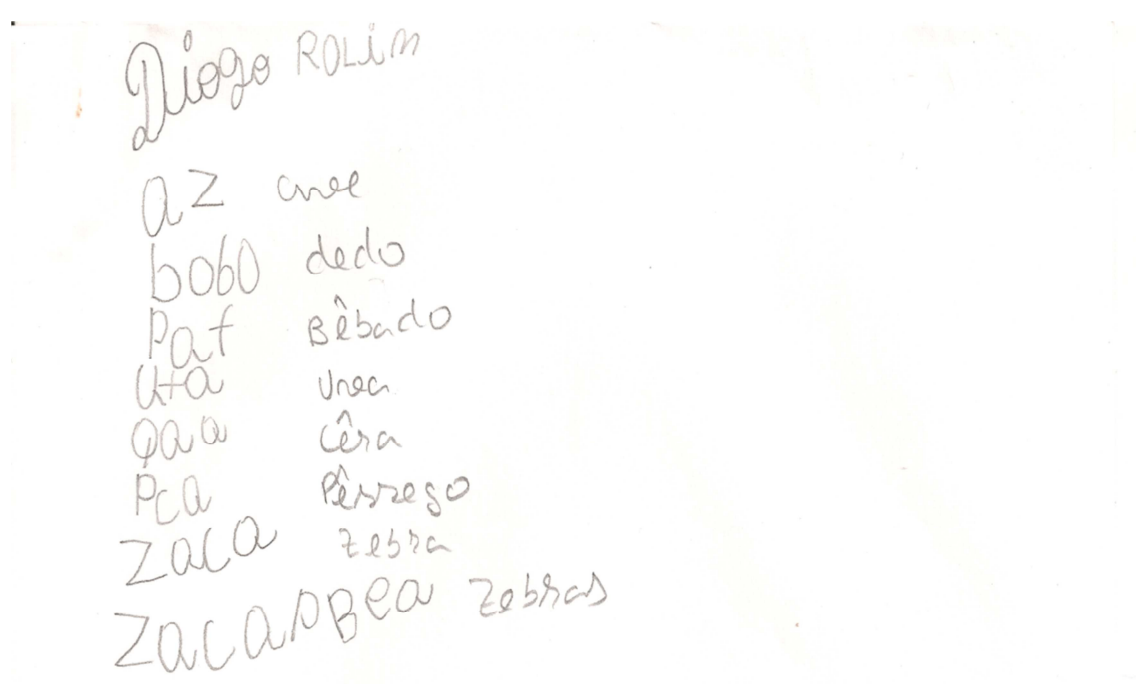 Diogo ROLim
az
bobo dedo
Paf Bêbado
uta Urea
Qaa Cêra
Pca Pêssego
Zaca Zebra
Zacaspbea Zebras